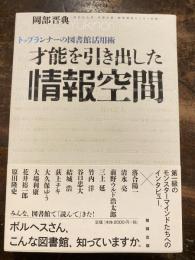 岡部晋典
トップランナーの図書館活用術
才能を引き出した
情報空間
第一級の
モンスターマインドたちへの
インタビュー
落合陽一
清水亮
前野ウルド浩太郎
三上延
竹内洋
谷口忠大
結城浩
荻上チキ
大久保ゆう
大場利康
花井裕一郎
原田隆史
定価(本体2000円+税)
勉誠出版
みんな、図書館で「読んで」きた!
ボルヘスさん、
こんな図書館、知っていますか。